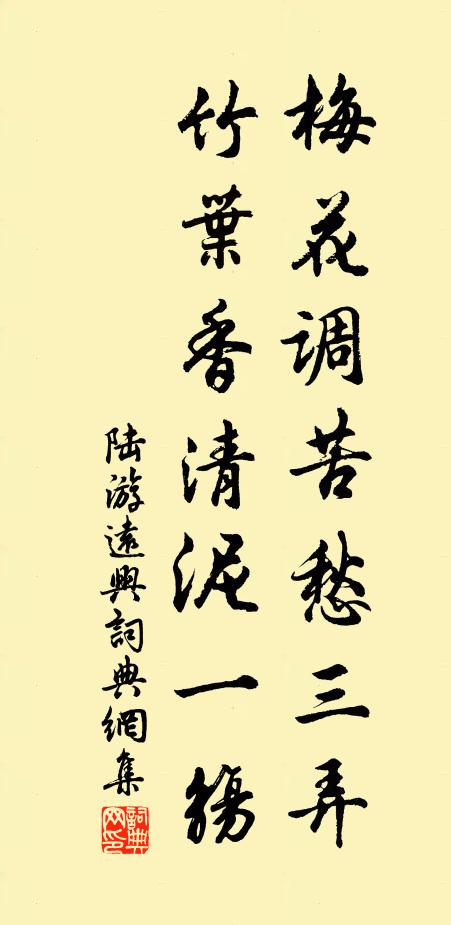 梅花調苦愁三弄
竹葉香清泥一觴
陸游遠興詞典網集
詞典網印